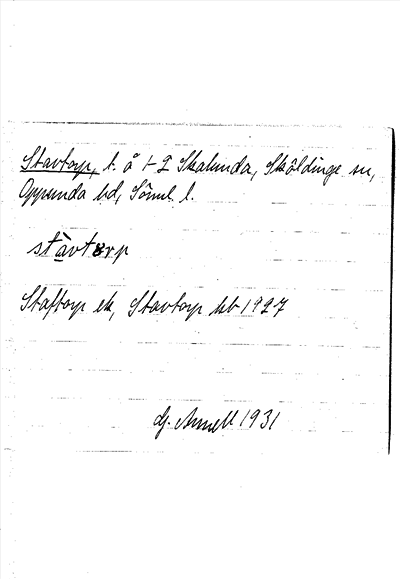 Stavtorp, t. å 1-2 Skalunda, Sköldinge sn,
Oppunda hd, Söml. l.
stàvtɷrp
Staftorp ek, Stavtorp kb 1927
G. Annell 1931